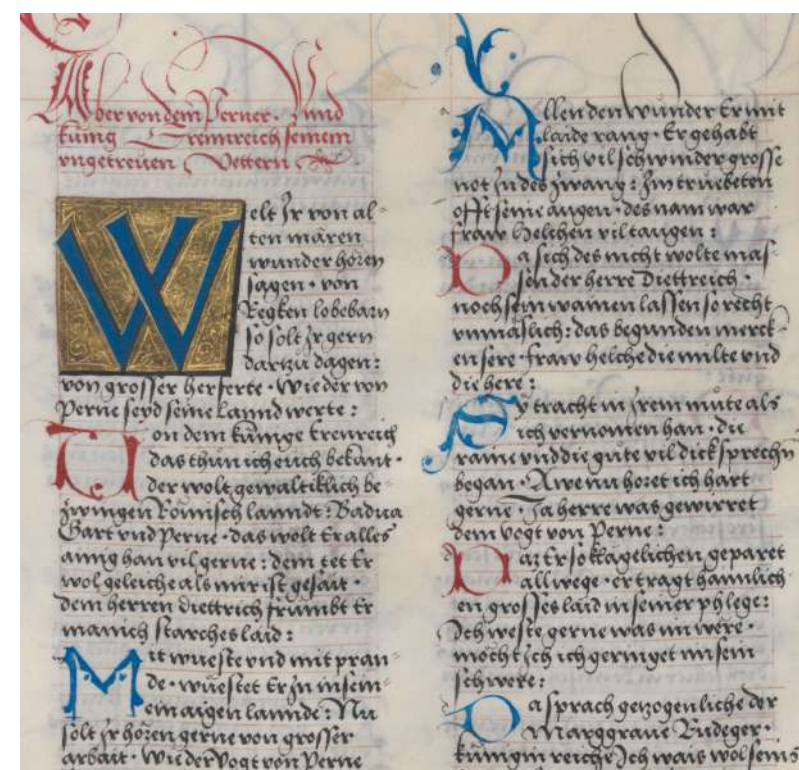 Aber von dem Perner · Vnd
künig Ermreich seinem
vngetreuen Vettern
Welt Jr von al-
ten mären
wunder hören
sagen · von
Regken lobebarn
so solt Jr gern
dartzu dagen:
von grosser herferte · Wie der von
Perne seyd seine lannd werte:
Von dem künige Erenreich
das thun ich euch bekant ·
der wolt gewaltiklich be
zwingen Römisch lanndt: Badua
Gart vnd Perne · das wolt Er alles
ainig han vil gerne: dem tet Er
wol geleiche als mir ist gesait ·
dem herren Diettrich frumbt Er
manich starches laid:
Mit wueste vnd mit pran-
de · wüestet Er Jn in seim-
em aigen lannde: Nu
solt jr hören gerne von grosser
arbait · Wie der Vogt von Perne
Allen den wunder Er mit
laide rang · Er gehabt
sich vil schwinder grosse
not Jn des zwang: Jm truebeten
offt seine augen · des nam war
fraw Helchen vil taugen:
Da sich des nicht wolte mas-
sen der herre Diettreich ·
noch sein wainen lassen so recht
vnmäslich: das begunden merck-
en sere · fraw helche die milte vnd
die here:
Sy tracht in jrem mute als
ich vernomen han · die
raine vnd die gute vil dick sprechn
began · Awe nu höret ich hart
gerne · Ja herre was gewirret
dem vogt von Perne:
Daz Er so klagelichen geparet
all wege · er tragt hännlich-
en grosses laid in seiner phlege:
Ich weste gerne was im were ·
möcht Jch ich geringet im sein
schwere:
Da sprach getzogenliche der
Marggraue Rudeger ·
künigin reiche Jch wais wol seins